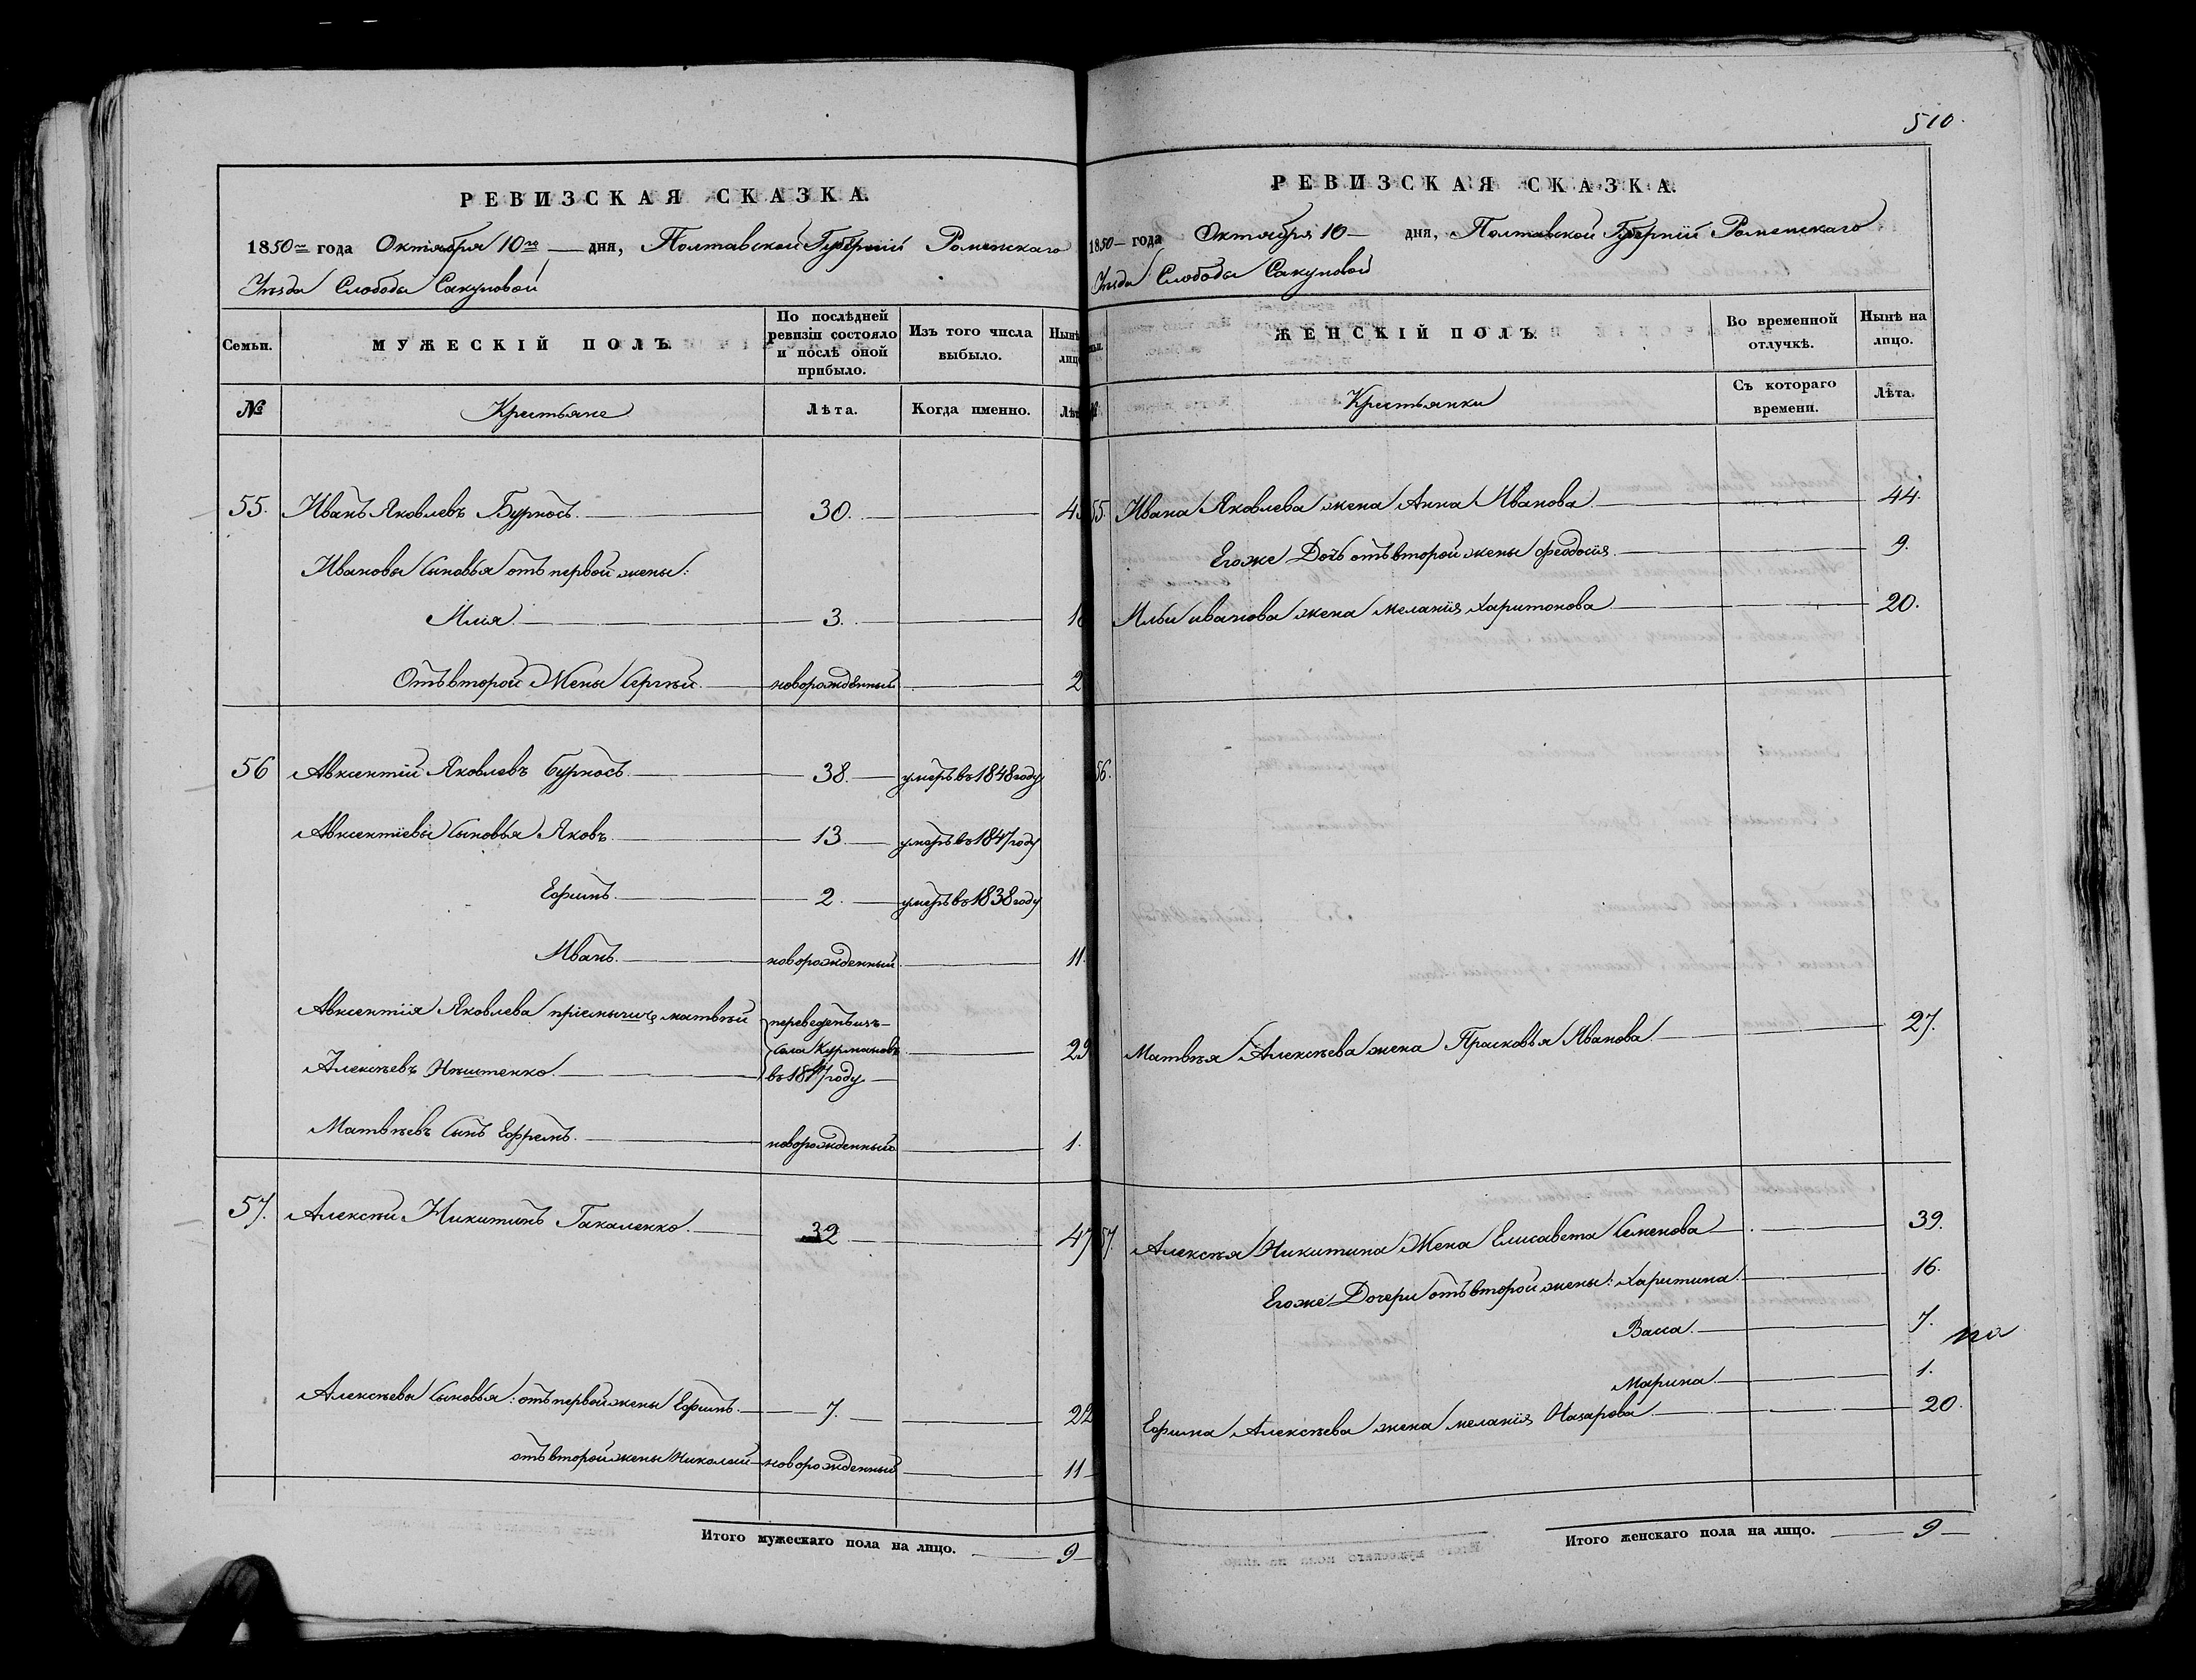 РЕВИЗСКАЯ СКАЗКА.
1850го года Октября 10го дня, Полтавской Губерніи Роменскаго
Уезда Слободы Сакуновой
Семьи. МУЖЕСКІЙ ПОЛЪ. По послѣдней ревизіи состояло и послѣ оной прибыло. Изъ того числа выбыло. Нынѣ лицо
№ Крестьяне Лѣта. Когда именно.
55. Иванъ Яковлевъ Бурносъ. 30.
Ивановы Сыновья отъ первой жены:
Илія. 3.
Отъ второй Жены Сергѣй. новорожденный
56 Авксентій Яковлевъ Бурносъ. 38. умеръ въ 1848 году
Авксентіевы Сыновья Яковъ. 13 умеръ въ 1847 году
Ефимъ. 2. умеръ въ 1838 году
Иванъ. новорожденный 11.
Авксентія Яковлева пріемышъ матвѣй переведенъ изъ
Села Курмановъ 29
Алексѣевъ въ 1847 году
Матвѣевъ Сынъ Ефремъ. новорожденный 1.
57. Алексѣй Никитинъ Гакаленко. 32 47
Алексѣевы Сыновья: отъ первой жены Ефимъ. 7. 22
отъ второй жены Николай новорожденный 11
Итого мужескаго пола на лицо. 9
510.
РЕВИЗСКАЯ СКАЗКА.
1850 года Октября 10 дня, Полтавской Губерніи Роменскаго
Уезда Слободы Сакуновой
ЖЕНСКІЙ ПОЛЪ. Во временной отлучкѣ. Нынѣ на лицо.
Крестьянки Съ котораго времени. Лѣта.
55 Ивана Яковлева жена Анна Иванова. 44.
Егоже Дочь отъ второй жены феодосія. 9.
Ильи иванова жена меланія Харитонова 20.
56.
Матвѣя Алексѣева жена Прасковья Иванова. 27.
57. Алексѣя Никитина Жена Елисавета Семенова 39.
Егоже Дочери отъ второй жены: Харитина. 16.
Васса. 7.
Марина. 1.
Ефима Алексѣева жена меланія Назарова. 20.
Итого женскаго пола на лицо. 9